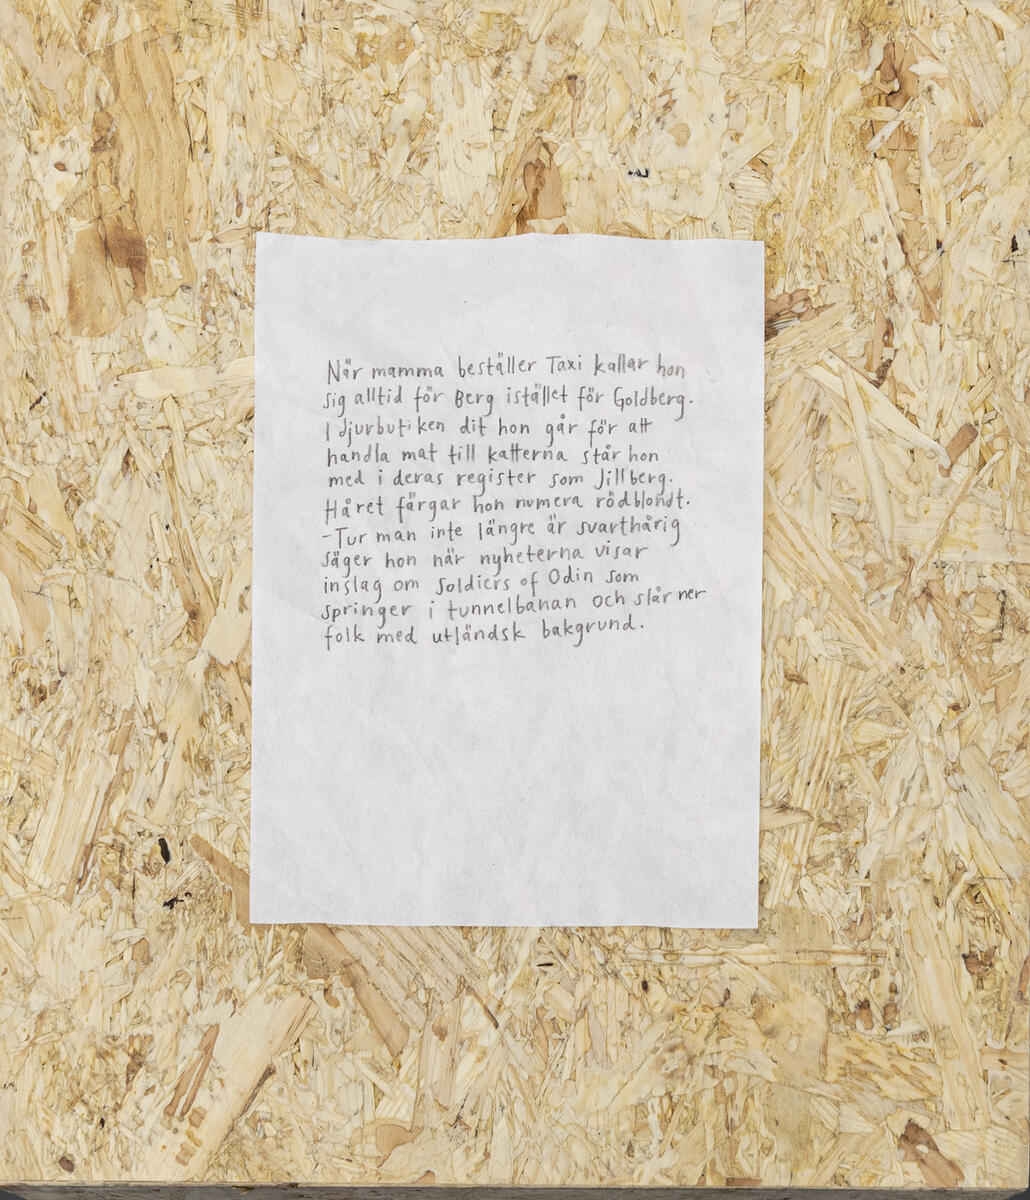 När mamma beställer Taxi kallar hon
sig alltid för Berg istället för Goldberg.
I djurbutiken dit hon går för att
handla mat till katterna står hon
med i deras register som Jillberg.
Håret färgar hon numera rödblondt.
-Tur man inte längre är svarthårig
säger hon när nyheterna visar
inslag om Soldiers of Odin som
springer i tunnelbanan och slår ner
folk med utländsk bakgrund.